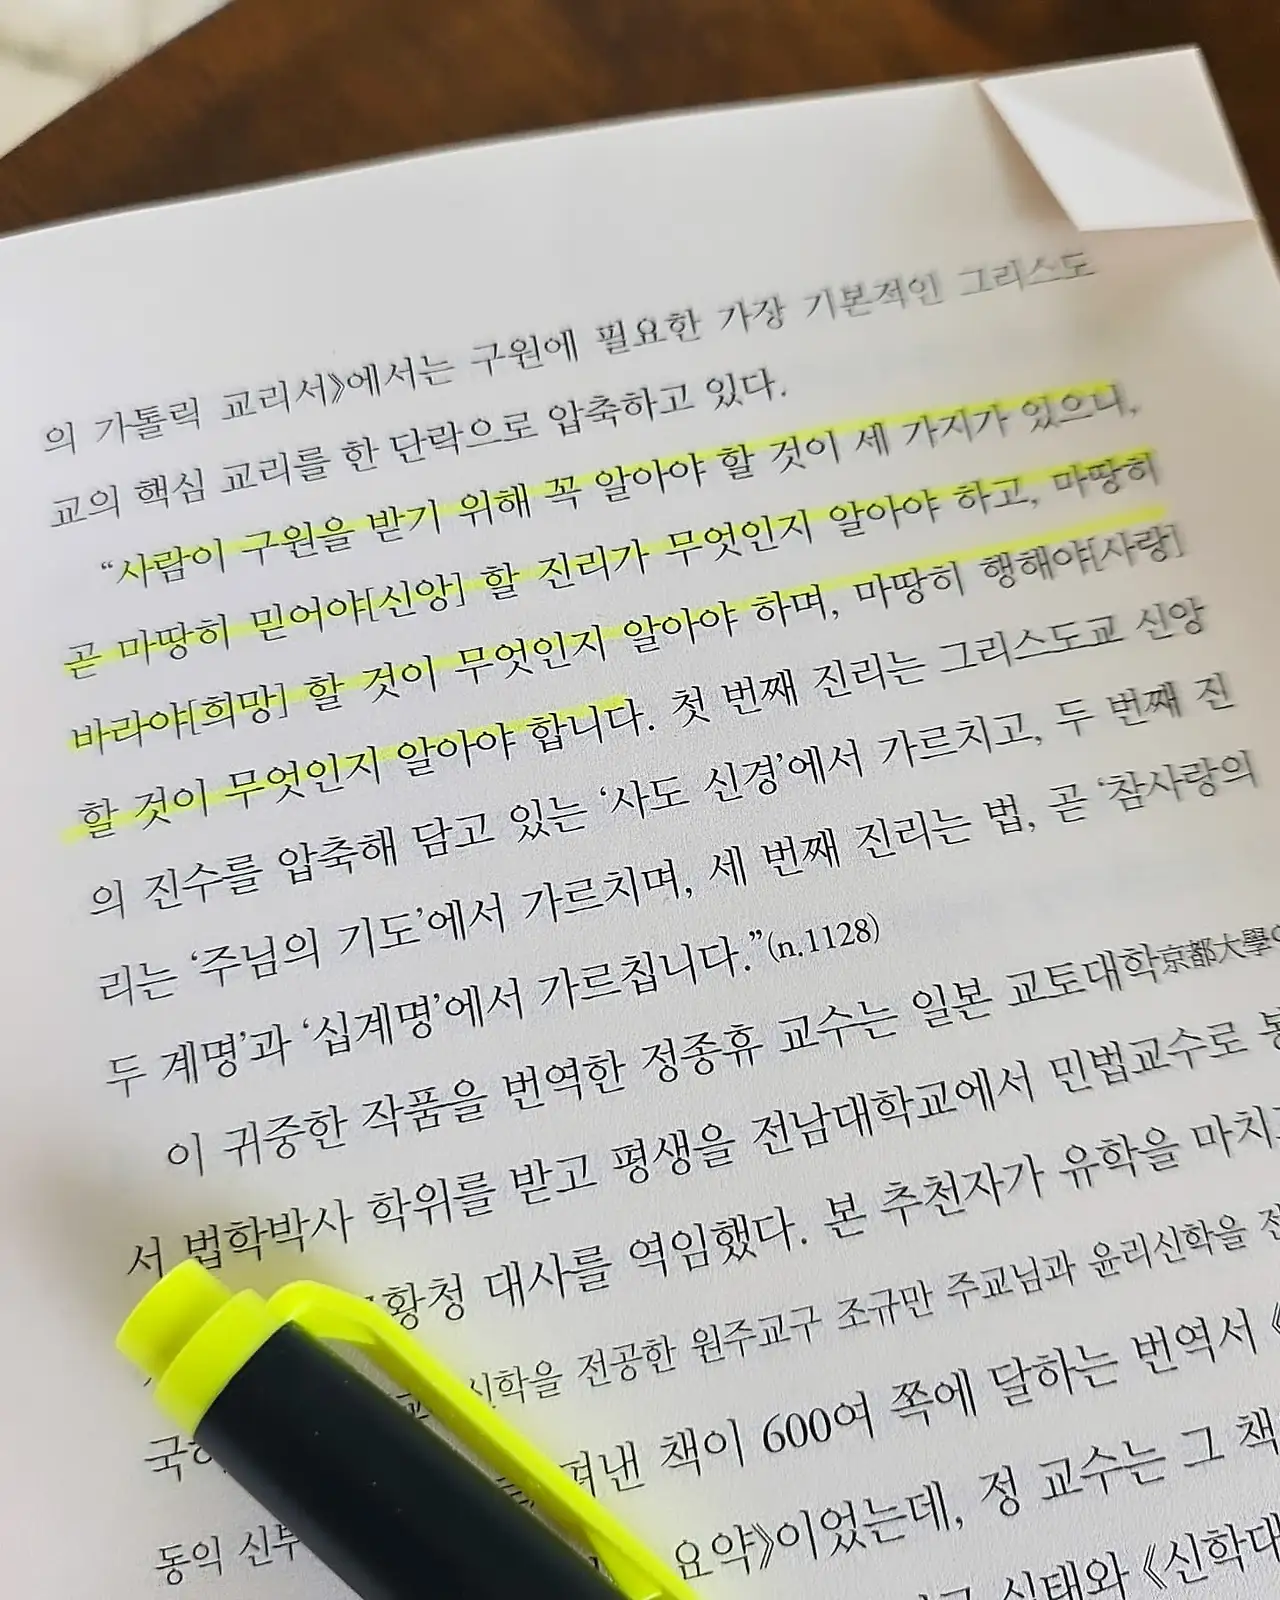 의 가톨릭 교리서》에서는 구원에 필요한 가장 기본적인 그리스도
교의 핵심 교리를 한 단락으로 압축하고 있다.
“사람이 구원을 받기 위해 꼭 알아야 할 것이 세 가지가 있으니,
곧 마땅히 믿어야[신앙] 할 진리가 무엇인지 알아야 하고, 마땅히
바라야[희망] 할 것이 무엇인지 알아야 하며, 마땅히 행해야[사랑]
할 것이 무엇인지 알아야 합니다. 첫 번째 진리는 그리스도교 신앙
의 진수를 압축해 담고 있는 ‘사도 신경’에서 가르치고, 두 번째 진
리는 ‘주님의 기도’에서 가르치며, 세 번째 진리는 법, 곧 ‘참사랑의
두 계명’과 ‘십계명’에서 가르칩니다.”(n.1128)
이 귀중한 작품을 번역한 정종휴 교수는 일본 교토대학京都大學에
서 법학박사 학위를 받고 평생을 전남대학교에서 민법교수로
황청 대사를 역임했다. 본 추천자가 유학을 마치고
신학을 전공한 원주교구 조규만 주교님과 윤리신학을
국 펴낸 책이 600여 쪽에 달하는 번역서 《
동의 신부 요약》이었는데, 정 교수는 그 책
실태와 《신학대